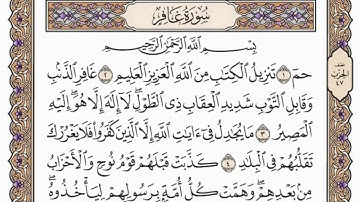 سُورَةُ غَافِرٍ
بِسْمِ ٱللَّهِ ٱلرَّحْمَٰنِ ٱلرَّحِيمِ
حمٓ ١ تَنزِيلُ ٱلْكِتَٰبِ مِنَ ٱللَّهِ ٱلْعَزِيزِ ٱلْعَلِيمِ ٢ غَافِرِ ٱلذَّنۢبِ
وَقَابِلِ ٱلتَّوْبِ شَدِيدِ ٱلْعِقَابِ ذِى ٱلطَّوْلِ لَآ إِلَٰهَ إِلَّا هُوَ إِلَيْهِ
ٱلْمَصِيرُ ٣ مَا يُجَٰدِلُ فِىٓ ءَايَٰتِ ٱللَّهِ إِلَّا ٱلَّذِينَ كَفَرُوا۟ فَلَا يَغْرُرْكَ
تَقَلُّبُهُمْ فِى ٱلْبِلَٰدِ ٤ كَذَّبَتْ قَبْلَهُمْ قَوْمُ نُوحٍ وَٱلْأَحْزَابُ
مِنۢ بَعْدِهِمْ وَهَمَّتْ كُلُّ أُمَّةٍۭ بِرَسُولِهِمْ لِيَأْخُذُوهُ
نصف
الحزب
٤٧